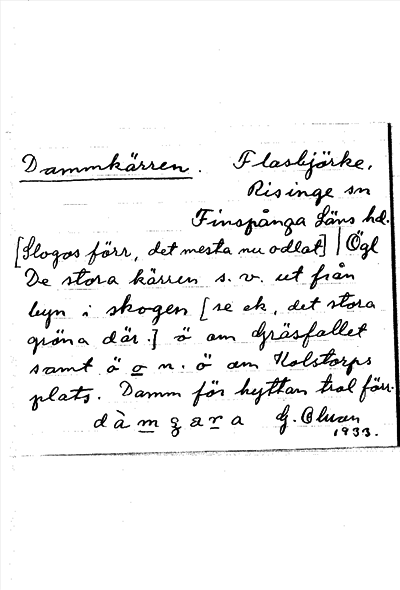 Dammkärren. Flasbjörke,
Risinge sn
Finspånga Läns hd.
[Slogos förr, det mesta nu odlat] | Ögl
De stora kärren s. v. ut från
byn i skogen [se ek, det stora
gröna där.] ö om Gräsfallet
samt ö o n. ö om Kolstorps
plats. Damm för hyttan trol förr.
G. Olson
1933.